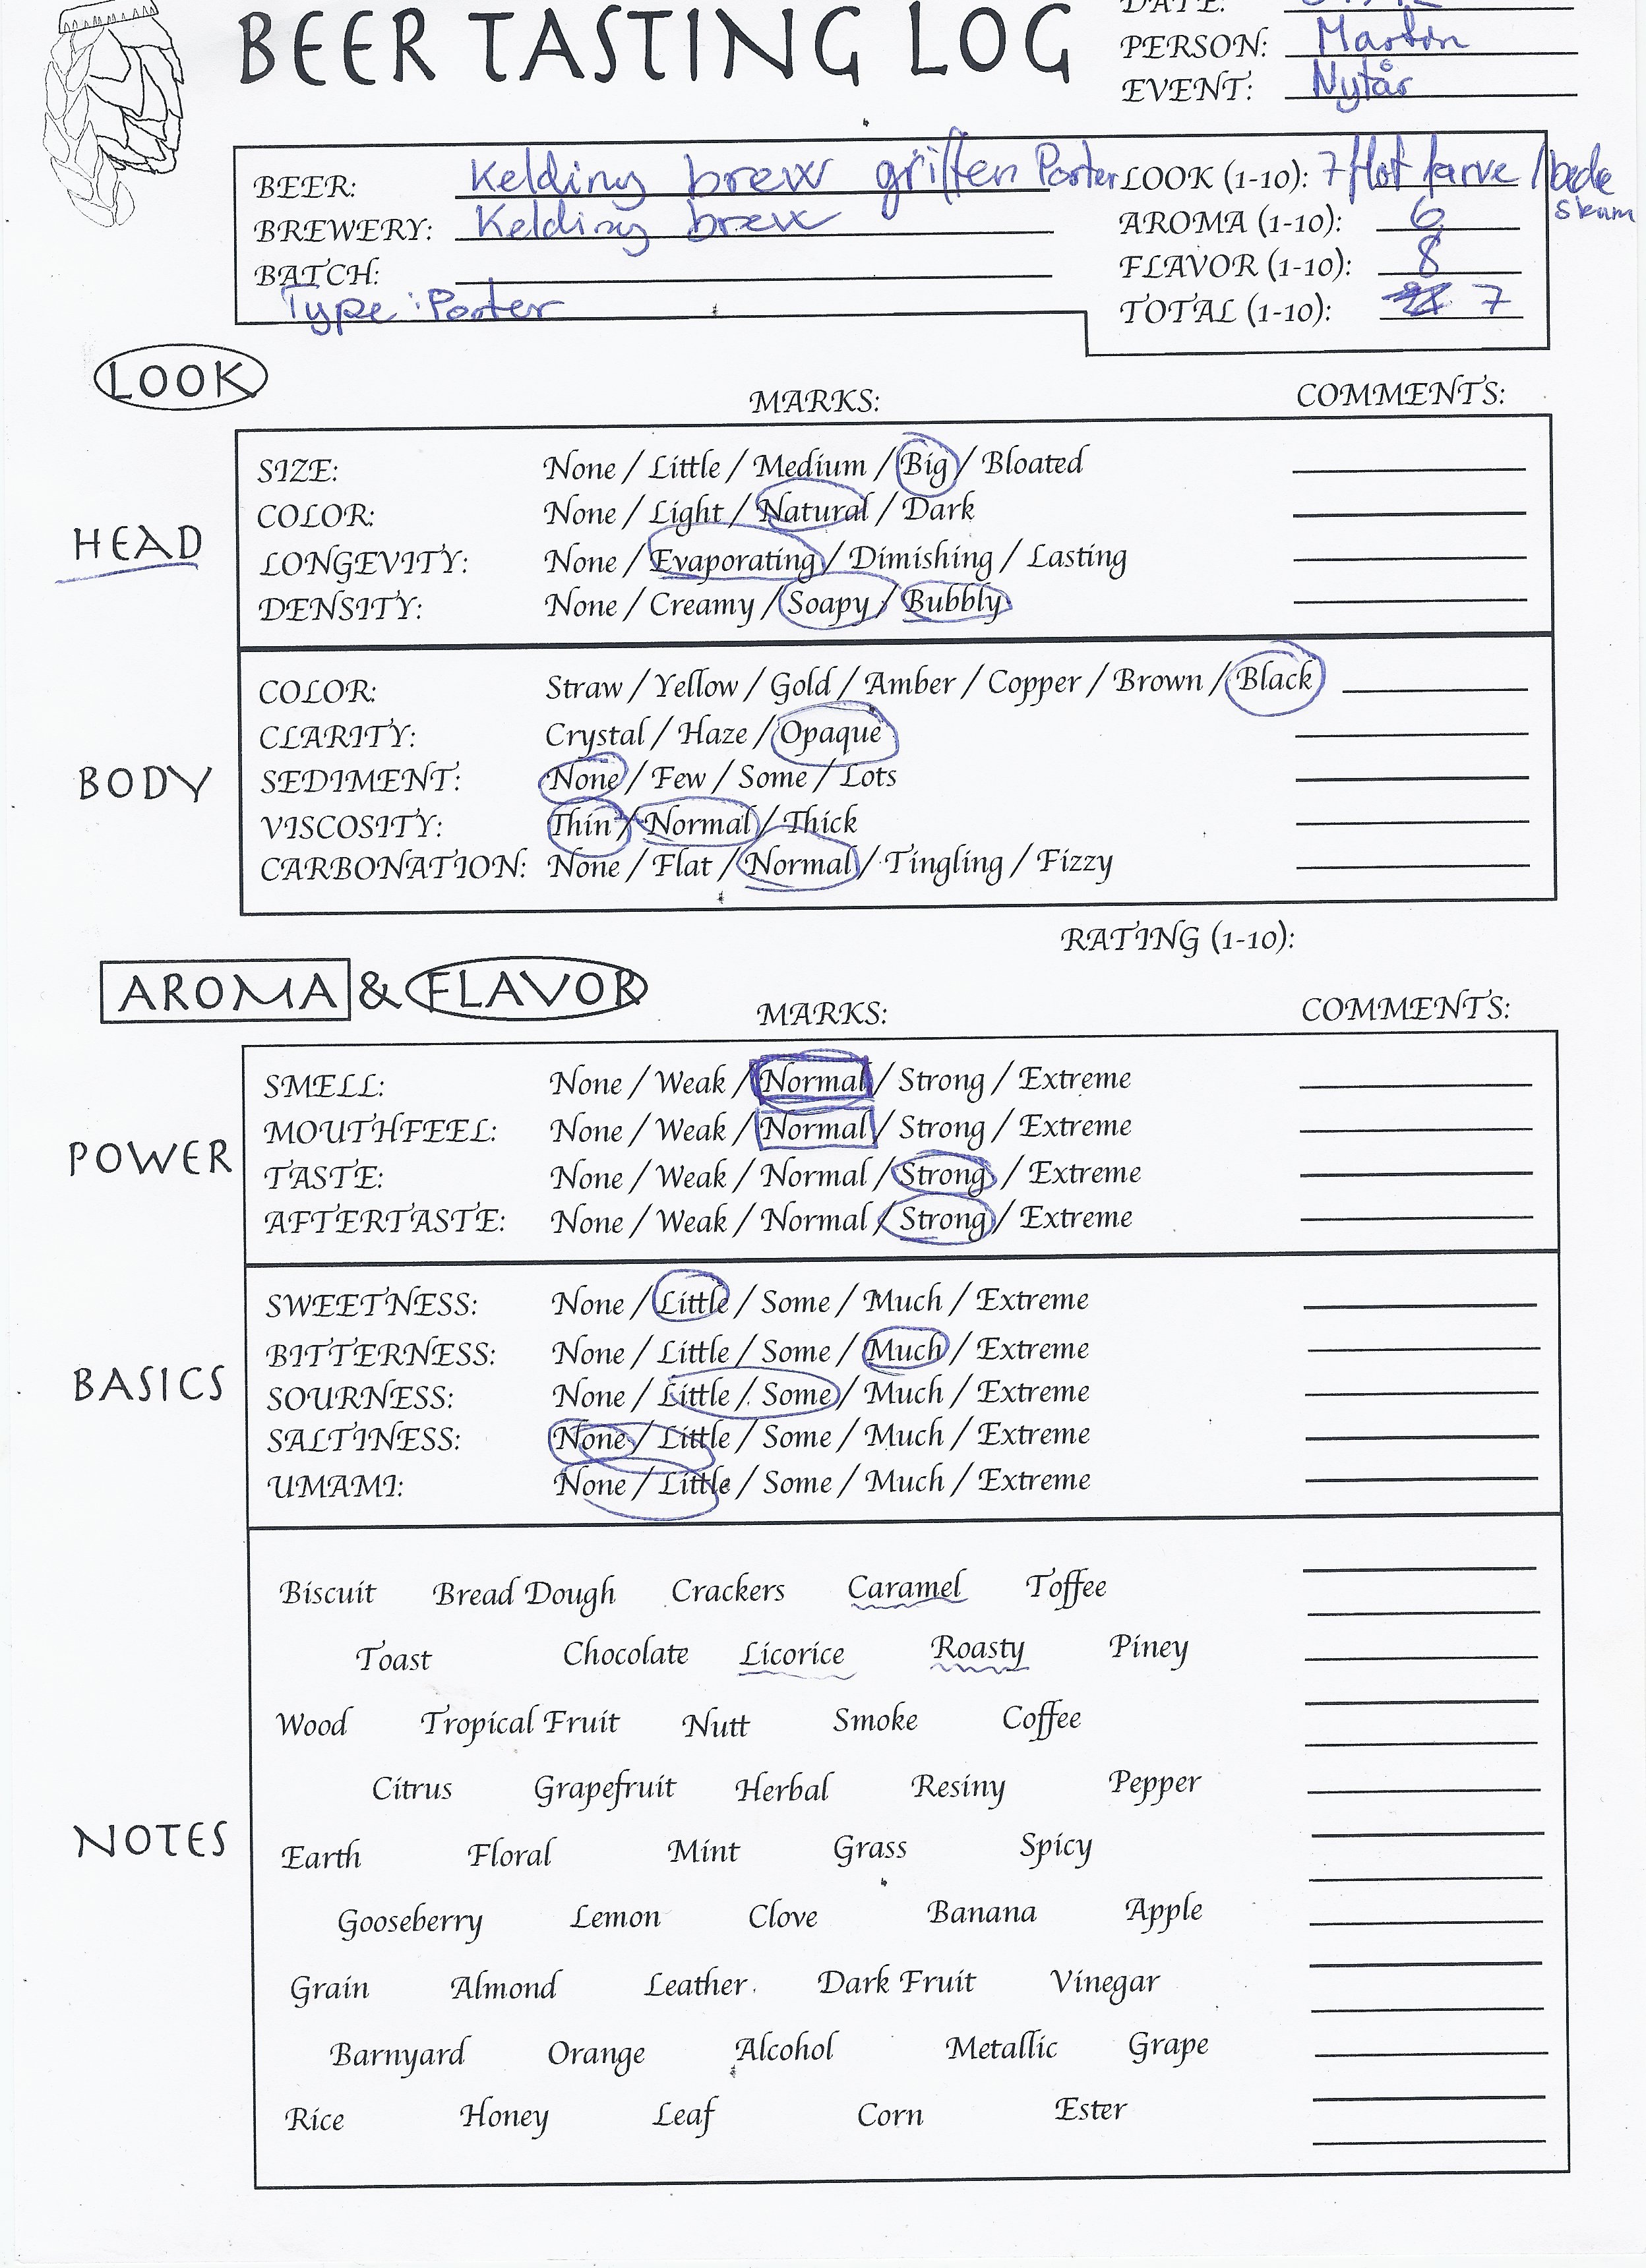 BEER TASTING LOG
DATE:
PERSON: Martin
EVENT: Nytår
BEER: Kelding brew griffen Porter
LOOK (1-10): 7 flot farve / bede
skum
BREWERY: Kelding brew
AROMA (1-10): 6
BATCH:
FLAVOR (1-10): 8
Type: Porter
TOTAL (1-10): 7
LOOK
MARKS: COMMENTS:
HEAD
SIZE: None / Little / Medium / Big / Bloated
COLOR: None / Light / Natural / Dark
LONGEVITY: None / Evaporating / Dimishing / Lasting
DENSITY: None / Creamy / Soapy / Bubbly
BODY
COLOR: Straw / Yellow / Gold / Amber / Copper / Brown / Black
CLARITY: Crystal / Haze / Opaque
SEDIMENT: None / Few / Some / Lots
VISCOSITY: Thin / Normal / Thick
CARBONATION: None / Flat / Normal / Tingling / Fizzy
RATING (1-10):
AROMA & FLAVOR
MARKS: COMMENTS:
POWER
SMELL: None / Weak / Normal / Strong / Extreme
MOUTHFEEL: None / Weak / Normal / Strong / Extreme
TASTE: None / Weak / Normal / Strong / Extreme
AFTERTASTE: None / Weak / Normal / Strong / Extreme
BASICS
SWEETNESS: None / Little / Some / Much / Extreme
BITTERNESS: None / Little / Some / Much / Extreme
SOURNESS: None / Little / Some / Much / Extreme
SALTINESS: None / Little / Some / Much / Extreme
UMAMI: None / Little / Some / Much / Extreme
NOTES
Biscuit Bread Dough Crackers Caramel Toffee
Toast Chocolate Licorice Roasty Piney
Wood Tropical Fruit Nutt Smoke Coffee
Citrus Grapefruit Herbal Resiny Pepper
Earth Floral Mint Grass Spicy
Gooseberry Lemon Clove Banana Apple
Grain Almond Leather Dark Fruit Vinegar
Barnyard Orange Alcohol Metallic Grape
Rice Honey Leaf Corn Ester